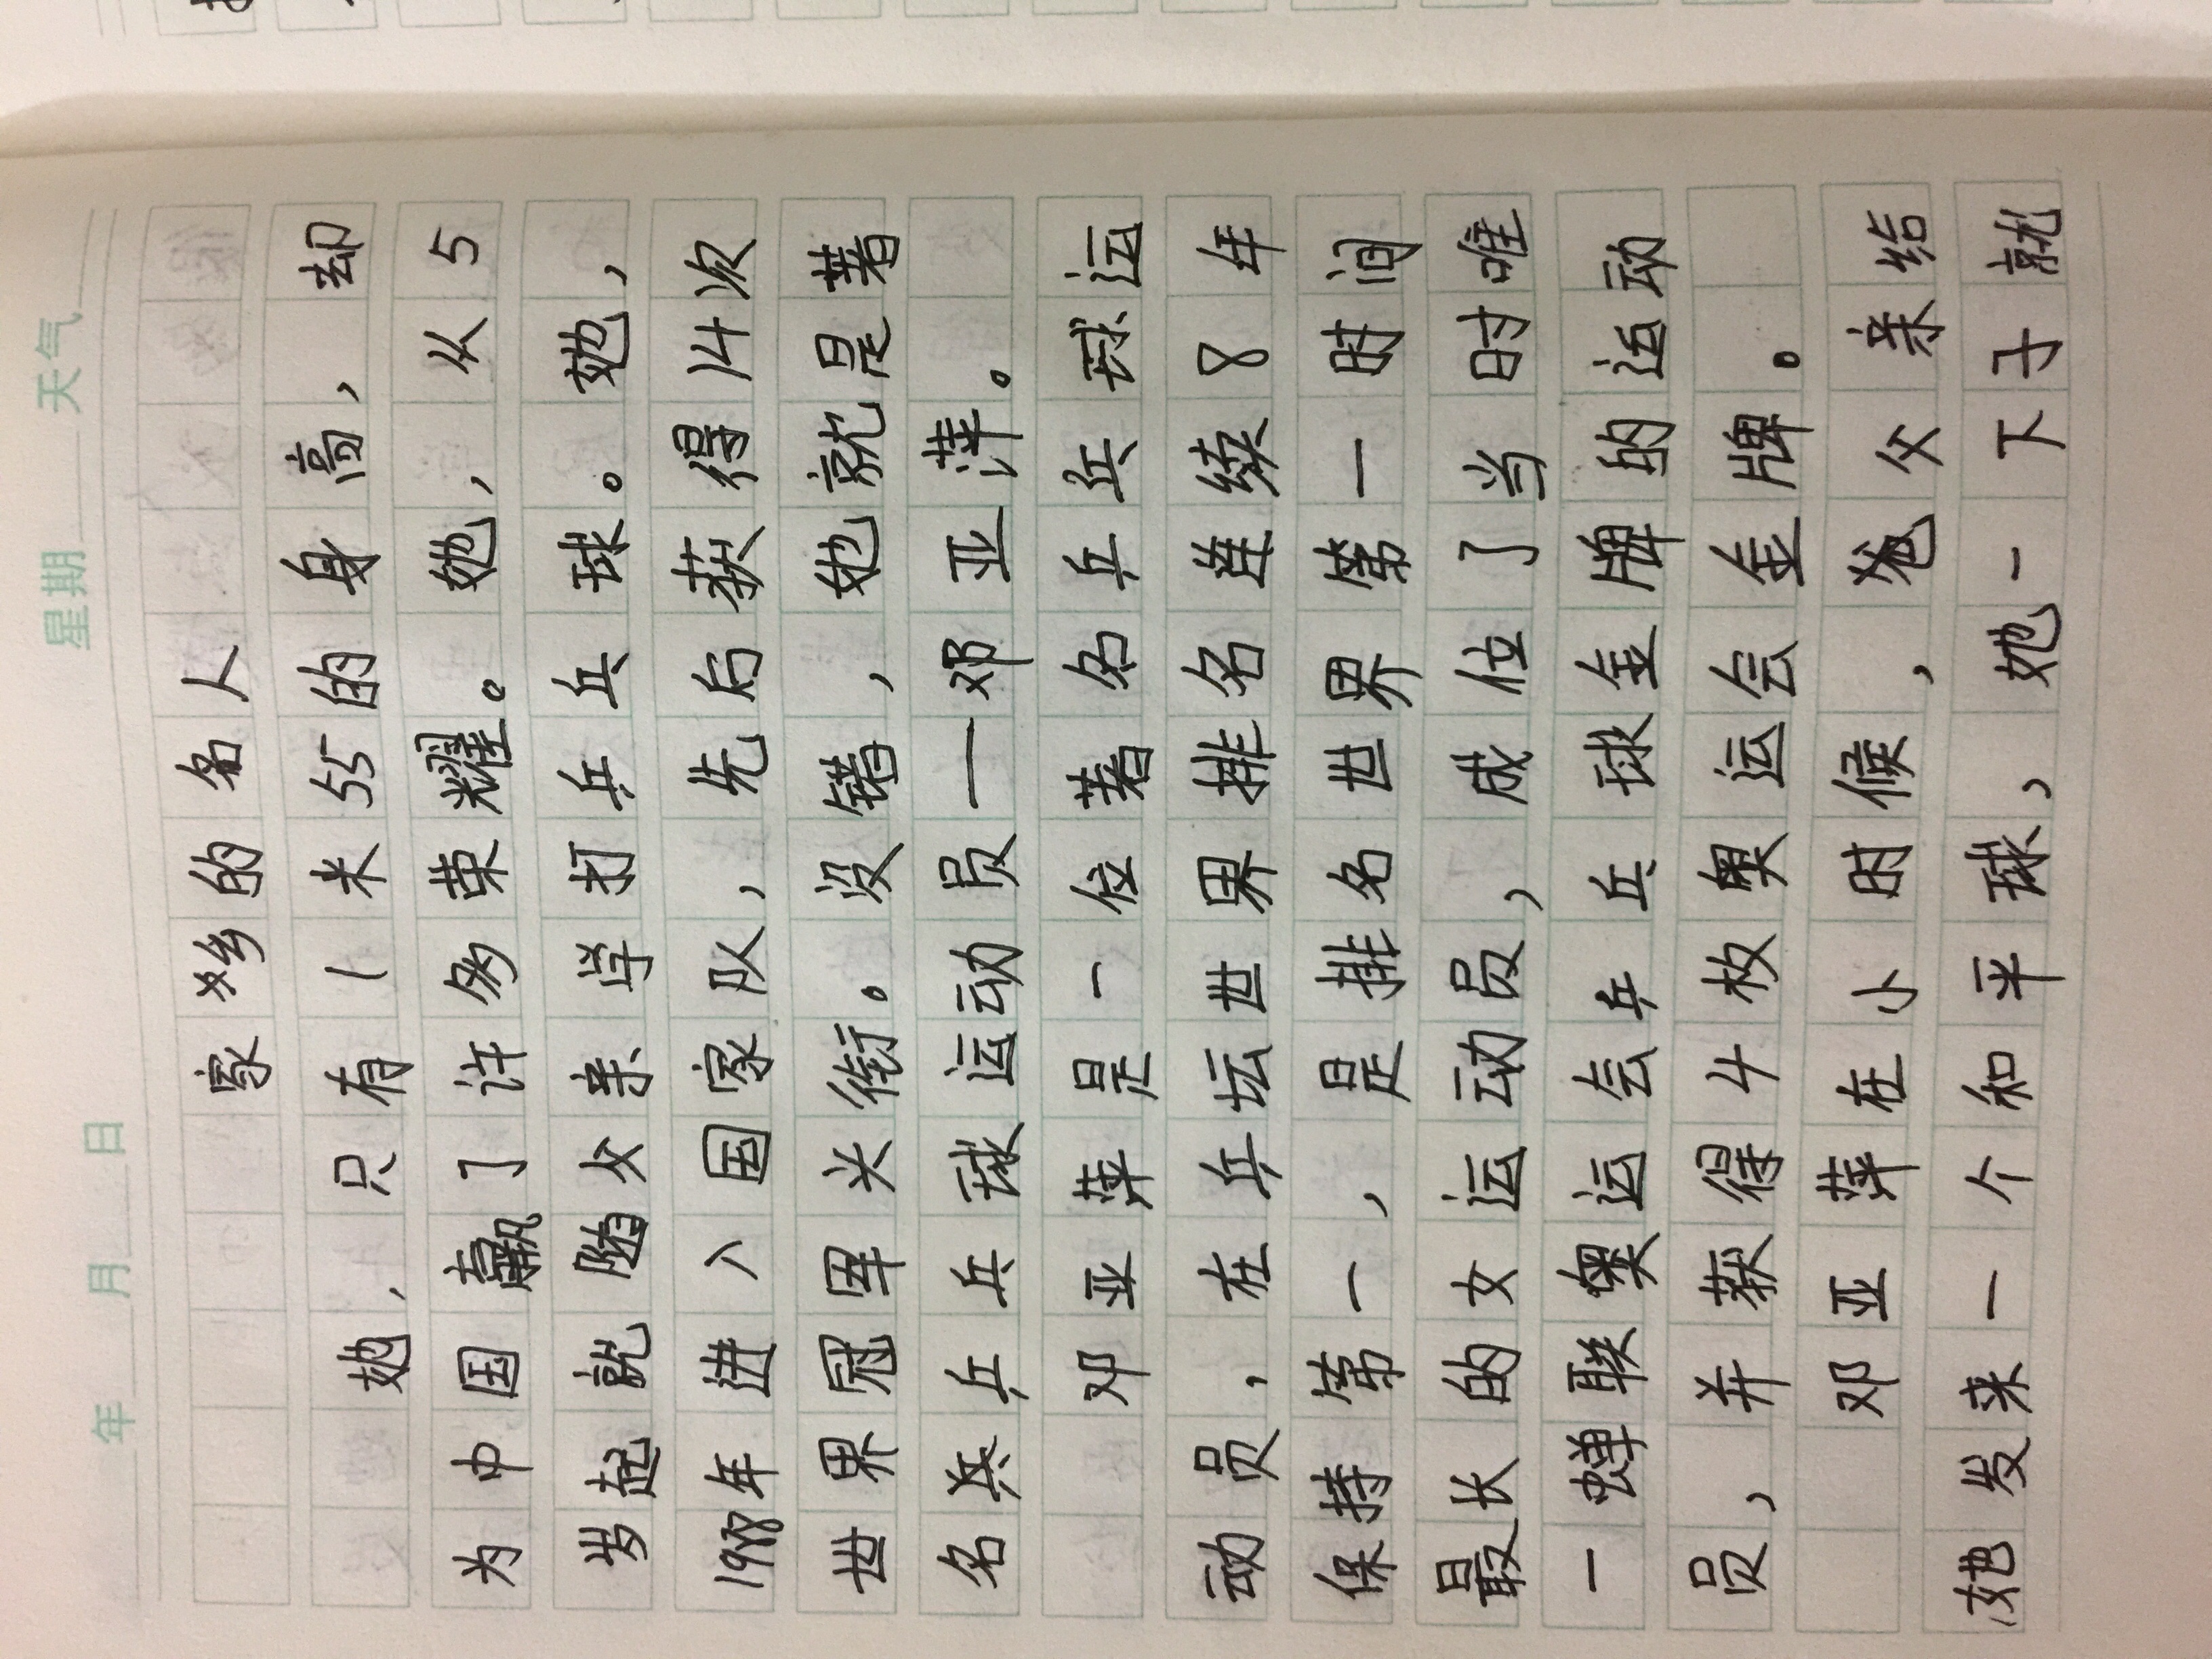 年 月 日 星期 天气
家乡的名人
她，只有1米55的身高，却
为中国赢了许多荣耀。她，从5
岁起就随父亲学打乒乓球。她，
1988年进入国家队，先后获得14次
世界冠军头衔。没错，她就是著
名乒乓球运动员——邓亚萍。
邓亚萍是一位著名乒乓球运
动员，在乒坛世界排名连续8年
保持第一，是排名世界第一时间
最长的女运动员，成位了当时唯
一蝉联奥运会乒乓球金牌的运动
员，并获得4枚奥运会金牌。
邓亚萍在小时候，爸父亲给
她发来一个和平球，她一下子就